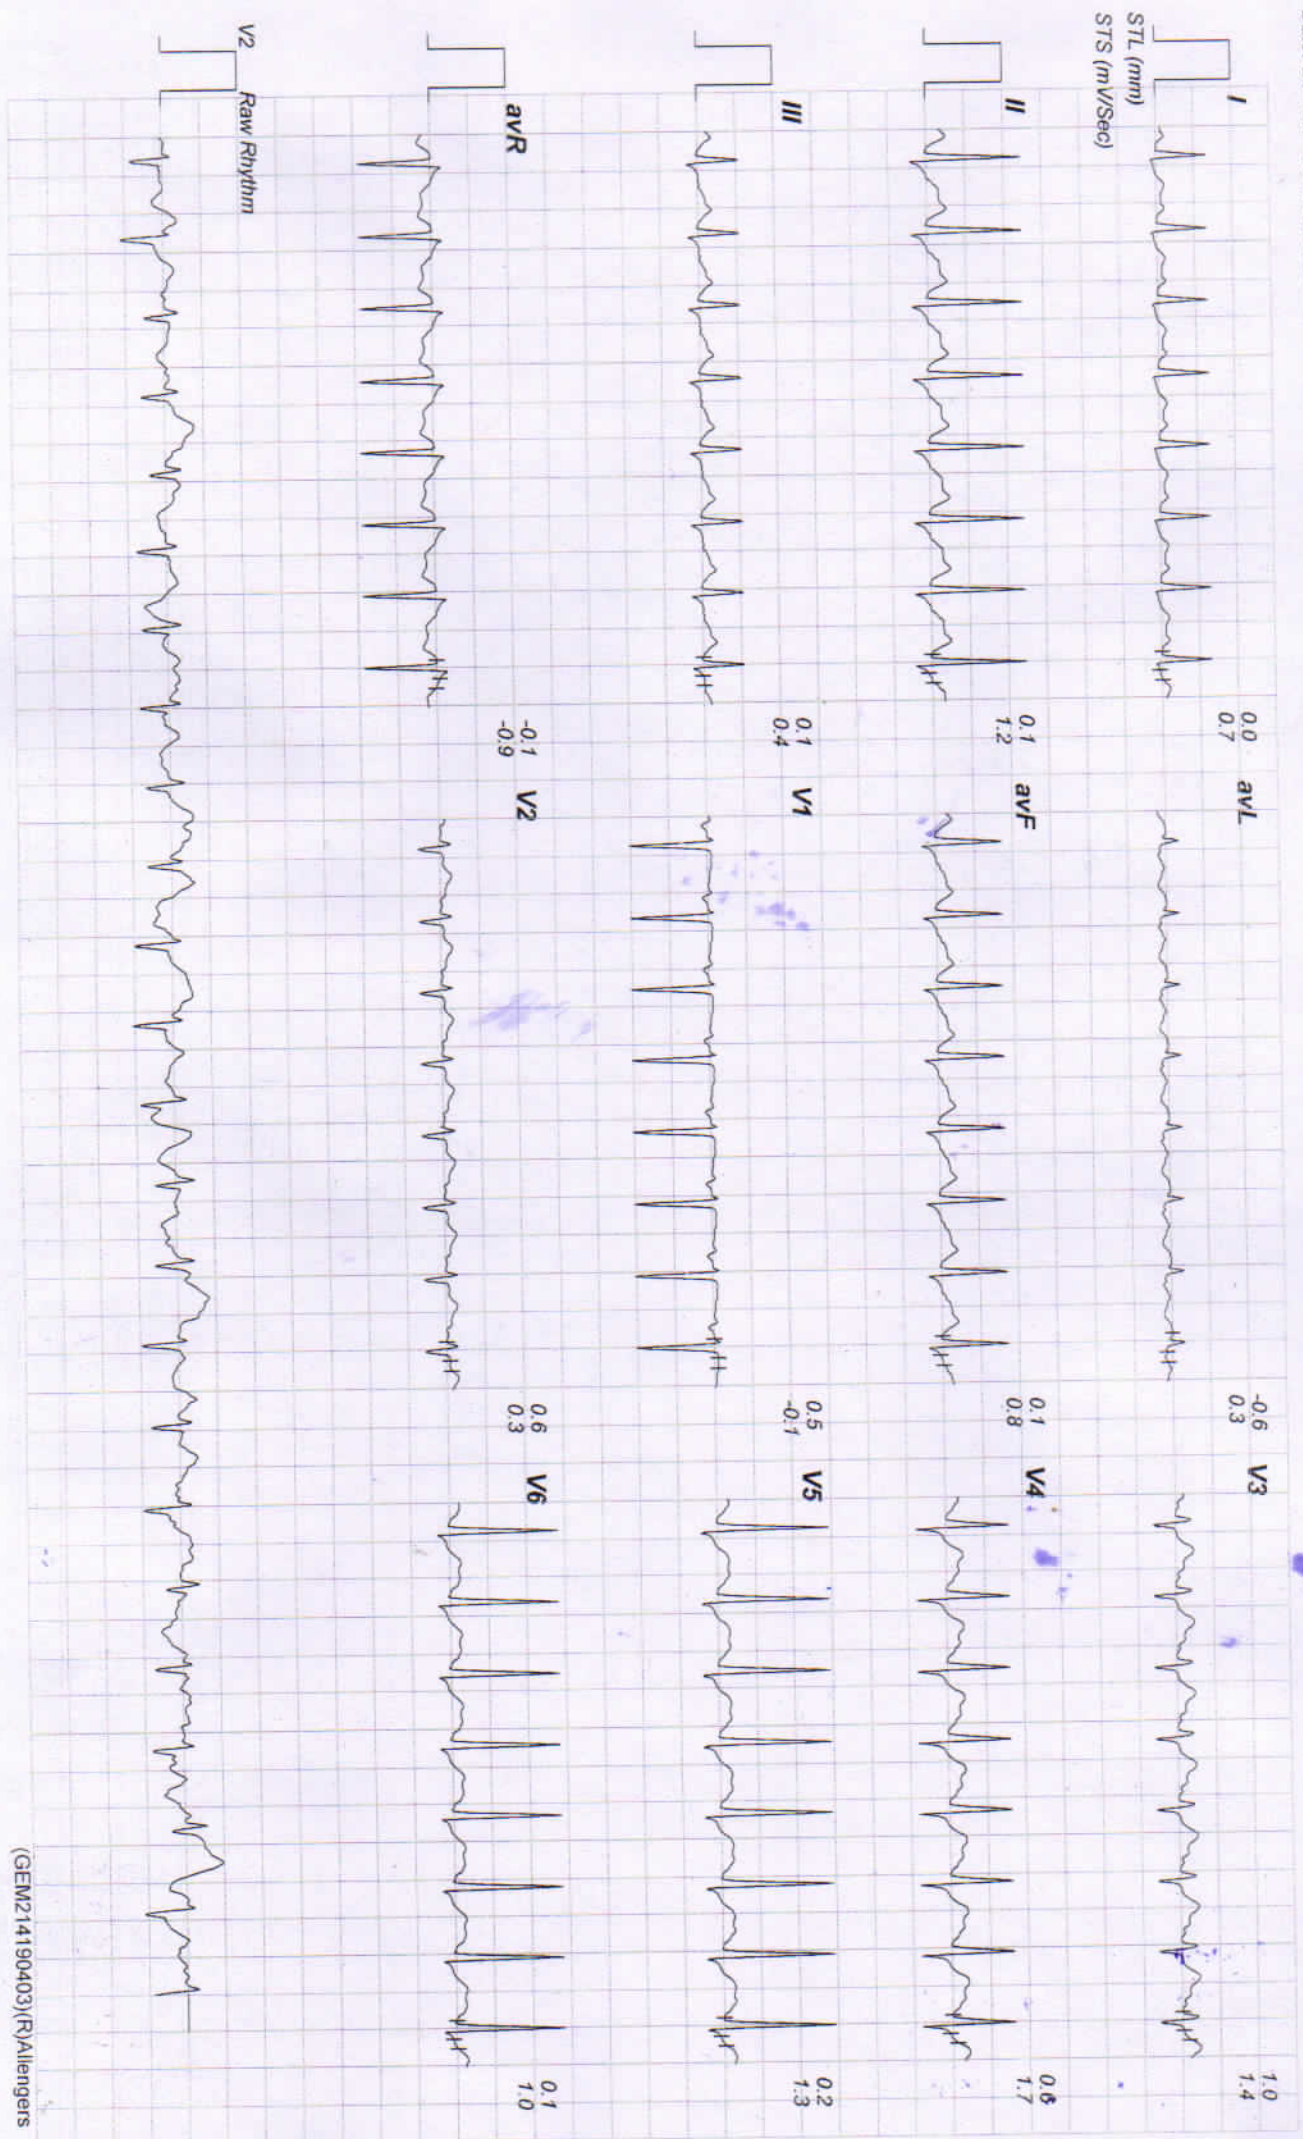 I
STL (mm)
STS (mV/Sec)
0.0
0.7
avL
-0.6
0.3
V3
1.0
1.4
II
0.1
1.2
avF
0.1
0.8
V4
1.7
III
0.1
0.4
V1
0.5
-0.1
V5
0.2
1.3
avR
-0.1
-0.9
V2
0.6
0.3
V6
0.1
1.0
V2 Raw Rhythm
(GEM214190403)(R)Allengers